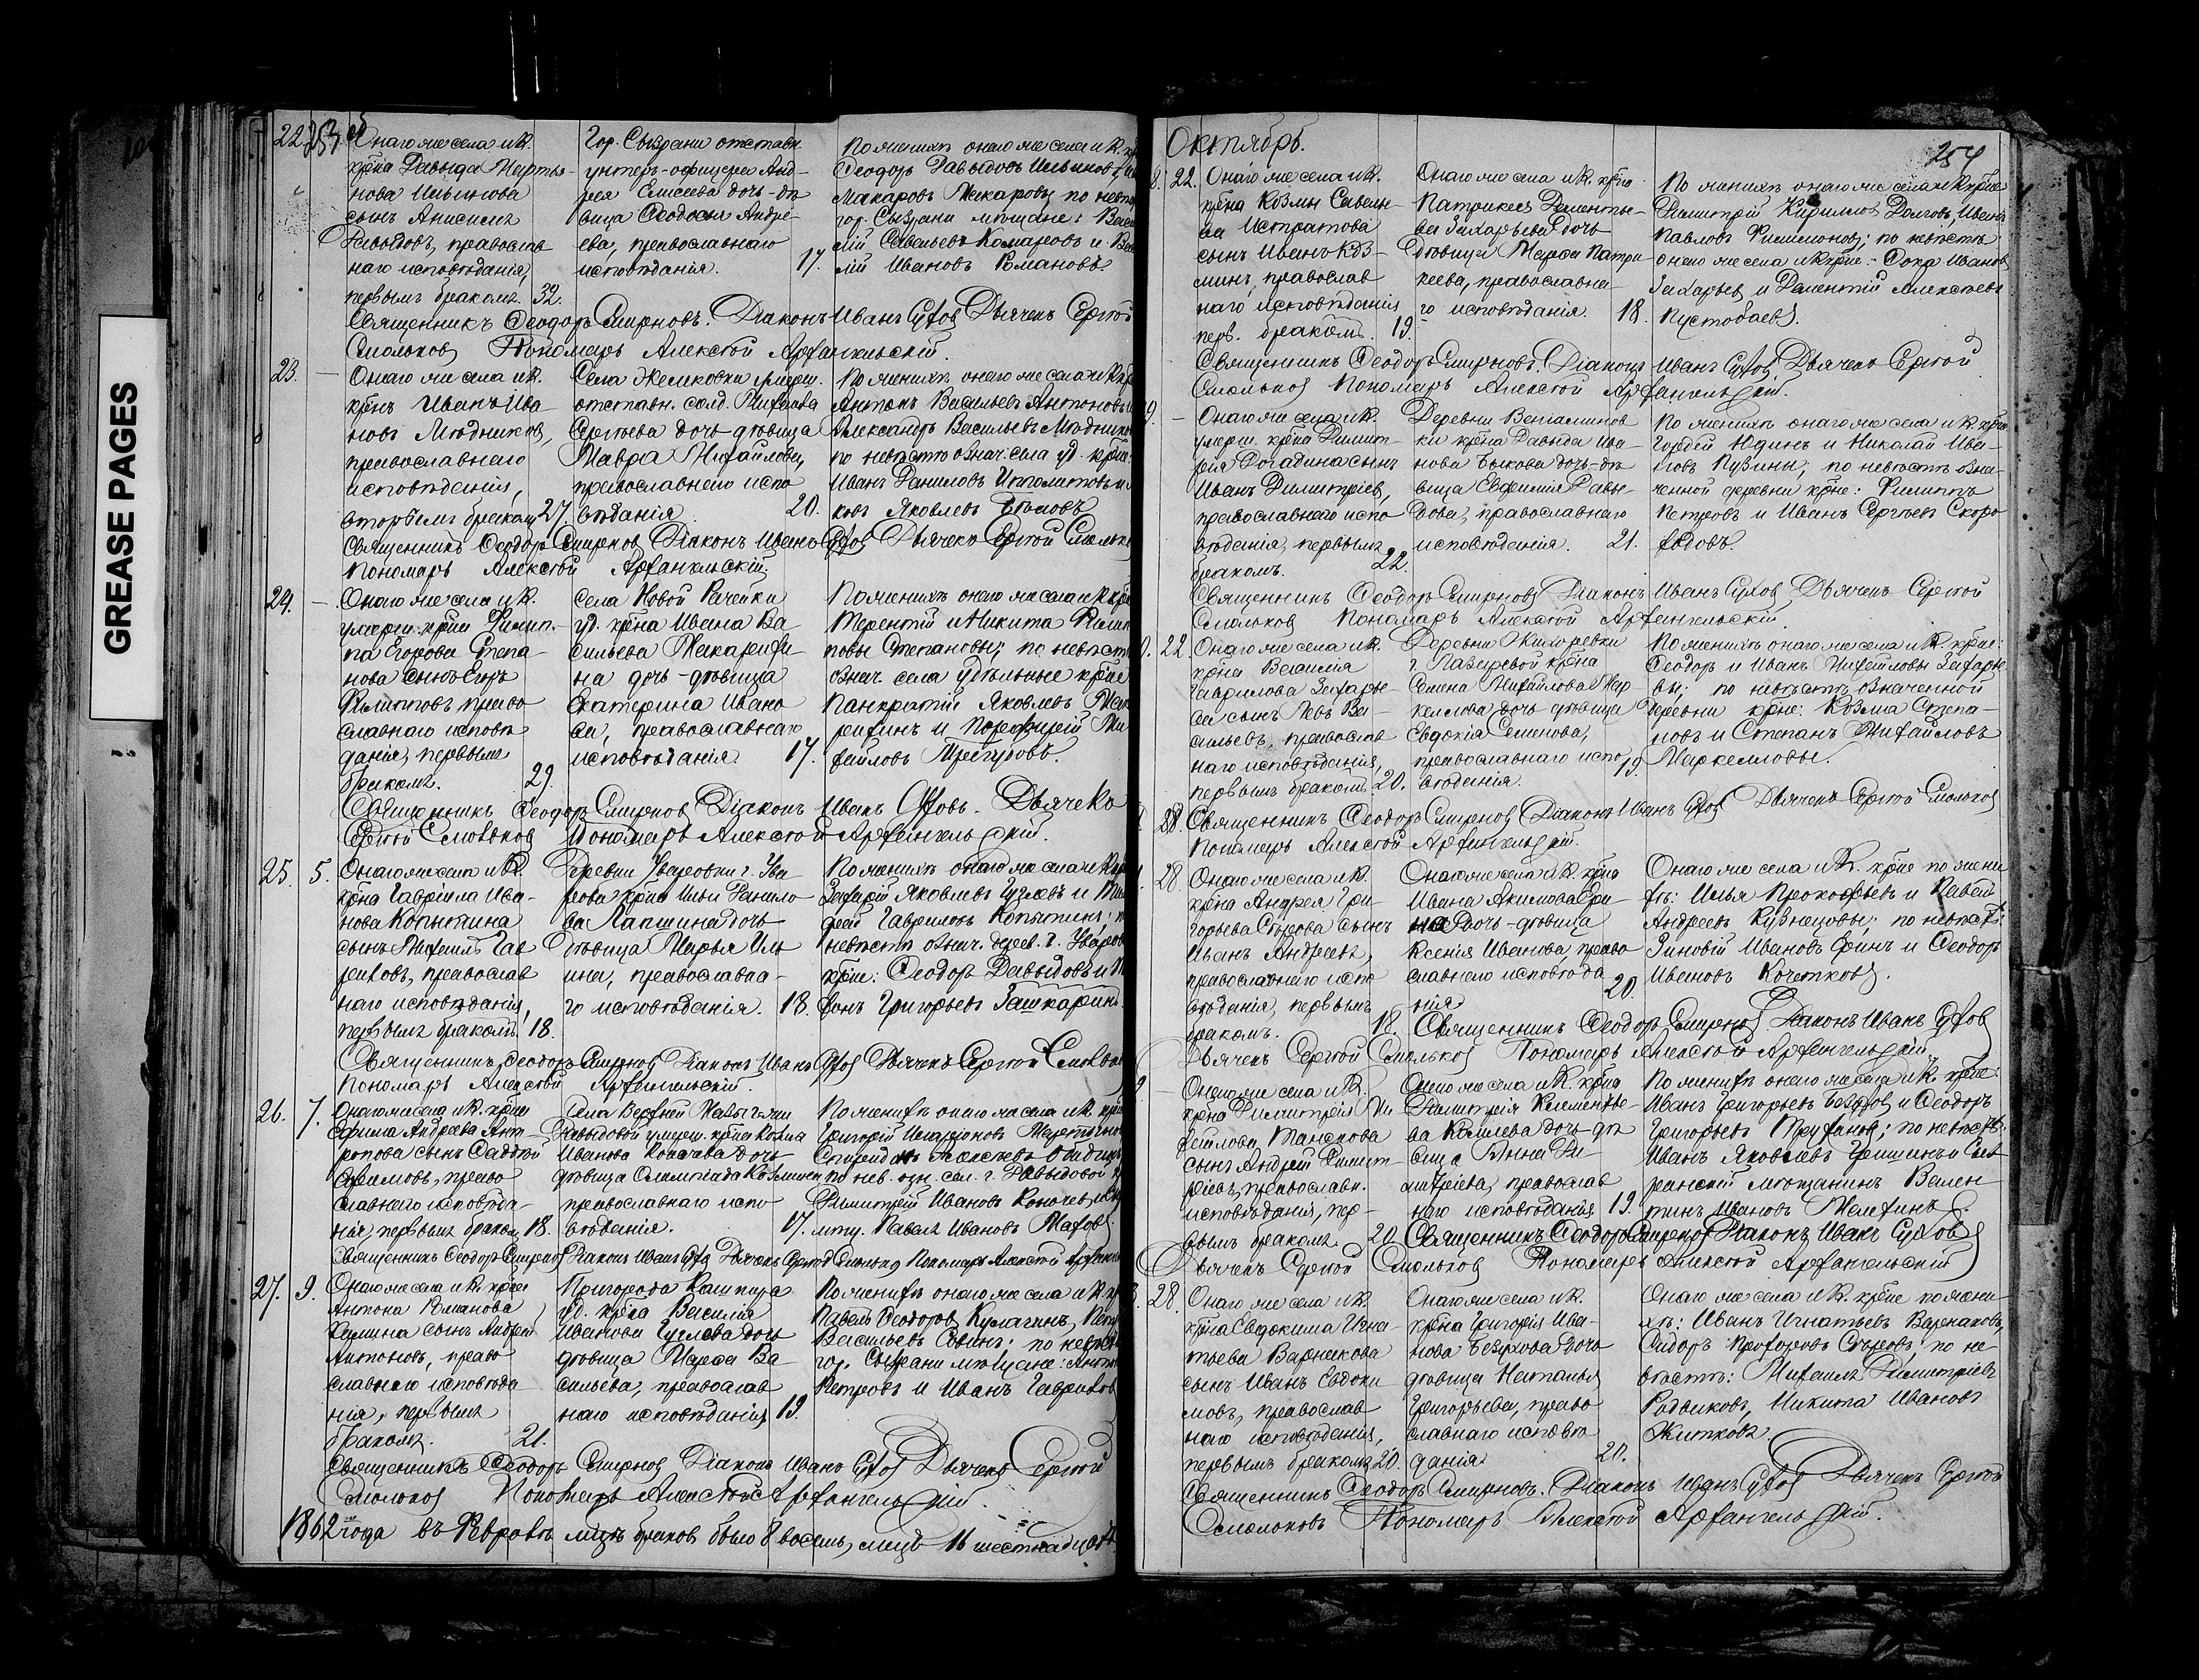 GREASE PAGES
22.
253
Онаго же села и К.
крна Давыда Марты-
нова Ильинова
сынъ Анисимъ
Давыдовъ, православ
наго исповѣданія,
первымъ бракомъ. 32.
Гор. Сызрани отставн.
унтеръ-офицера Анд-
рея Елисеева дочь-дѣ
вица Ѳеодосья Андре-
ева, православнаго
исповѣданія. 17.
По женихѣ онаго же села и К.
Ѳеодоръ Давыдовъ Ильинов
Макаровъ Макаров, по невѣ
гор. Сызрани мѣщане: Васи
лій Савельевъ Комаровъ и Ва
лій Ивановъ Романовъ.
Священникъ Ѳеодоръ Смирновъ. Діаконъ Иванъ Суховъ Дьячекъ Сергѣй
Смольковъ Пономарь Алексѣй Архангельскій.
23.
Онаго же села и К.
крнъ Иванъ Ива-
новъ Мѣдниковъ,
православнаго
исповѣданія,
вторымъ бракомъ 27.
Села умерш.
отставн. солд. Михаила
Сергѣева дочь дѣвица
Мавра Михайлова,
православнаго испо
вѣданія 20.
По женихѣ онаго же села и К.
Антонъ Васильевъ Антоновъ
Александръ Васильевъ Мѣднико
по невѣстѣ означ. села уд. крне
Иванъ Даниловъ Ипполитовъ и
ковъ Яковлевъ
Священникъ Ѳеодоръ Смирновъ Діаконъ Иванъ Суховъ Дьячекъ Сергѣй Смольк
Пономарь Алексѣй Архангельскій.
24.
Онаго же села и К.
умерш. крна Филип-
па Егорова Степа-
нова сынъ Егоръ
Филипповъ право
славнаго исповѣ
данія, первымъ
бракомъ. 29.
Села Новой Рачейки
уд. крна Ивана Ва-
сильева
на дочь-дѣвица
Екатерина Ивано
ва, православнаго
исповѣданія 17.
По женихѣ онаго же села и К. кре
Терентій и Никита Филип
повы Степановы; по невѣст
означ. села удѣльные крне
Панкратій Яковлевъ
рихинъ и Порфирій Ми
хайловъ Трегубовъ.
Священникъ Ѳеодоръ Смирновъ Діаконъ Иванъ Суховъ. Дьячекъ
Сергѣй Смольковъ Пономарь Алексѣй Архангельскій.
25. 5.
Онаго же села и К.
крна Гавріила Ива-
нова Копытина
сынъ Михаилъ Гав
риловъ, православ
наго исповѣданія,
первымъ бракомъ. 18.
Деревни Уваровки г. Ува
рова крна Ильи Данило
ва Лапшина дочь
дѣвица Марья Иль
ина, православна-
го исповѣданія. 18.
По женихѣ онаго же села и К.
Захарій Яковлевъ Гузяевъ и
фей Гавриловъ Копытинъ;
невѣстѣ означ. дерев. г. Уваров
крне: Ѳеодоръ Давыдовъ и
фонъ Григорьевъ Зашкаринъ.
Священникъ Ѳеодоръ Смирновъ Діаконъ Иванъ Суховъ Дьячекъ Сергѣй Смольков
Пономарь Алексѣй Архангельскій.
26. 7.
Онаго же села и К. крна
Ефима Андреева Ант-
ропова сынъ Фаддей
Ефимовъ, право
славнаго исповѣда-
нія, первымъ бракомъ 18.
Села Верхней Мазы г-жи
Давыдовой умерш. крна Козьма
Иванова дочь
дѣвица Олимпіада Козьмина
православнаго испо-
вѣданія. 17.
По женихѣ онаго же села и К. крне
Григорій
Спиридонъ
по нев. озн. сел. г. Давыдовой
Димитрій Ивановъ
Павелъ Ивановъ
Священникъ Ѳеодоръ Смирновъ Діаконъ Иванъ Суховъ Дьячекъ Сергѣй Смольковъ Пономарь Алексѣй Архангел
27. 9.
Онаго же села и К. крна
Антона Романова
сынъ Андрей
Антоновъ, право
славнаго исповѣда
нія, первымъ
бракомъ. 21.
Пригорода Кашпира
уд. крна Василія
Иванова дочь
дѣвица Марѳа Ва-
сильева, православ
наго исповѣданія 19.
По женихѣ онаго же села и К.
Павелъ Ѳеодоровъ Кулагинъ,
Васильевъ Савинъ; по невѣс
гор. Сызрани мѣщане:
Петровъ и Иванъ Гавриловъ
Священникъ Ѳеодоръ Смирновъ Діаконъ Иванъ Суховъ Дьячекъ Сергѣй
Смольковъ Пономарь Алексѣй Архангельскій.
1862 года въ Февралѣ мцѣ браковъ было 8 восемь, лицъ 16 шестнадцать
Октябрь.
254
8. 22.
Онаго же села и К.
крна Козмы Савель-
ва Истратова
сынъ Иванъ Коз-
минъ, православ
наго исповѣданія
перв. бракомъ. 19.
Онаго же села и К. крна
Патрикея Даленть-
ва Захарьева дочь
дѣвица Марѳа Патри-
кеева, православна-
го исповѣданія 18.
По женихѣ онаго же села и К. крне
Димитрій Кириллов Долговъ, Иванъ
Павловъ Филимоновъ; по невѣстѣ
онаго же села и К. крне: Фока Иванов
Захарьев и Далентій Алексѣевъ
Пустобаев.
Священникъ Ѳеодоръ Смирновъ. Діаконъ Иванъ Суховъ Дьячекъ Сергѣй
Смольковъ Пономарь Алексѣй Архангельскій.
9.
Онаго же села и К.
умерш. крна Димит-
рія Рогадина сынъ
Иванъ Димитріев,
православнаго испо
вѣданія, первымъ
бракомъ. 22.
Деревни Веніаминов
ки крна Давыда Ива-
нова Быкова дочь-дѣ
вица Евфимія Давы-
дова, православнаго
исповѣданія. 21.
По женихѣ онаго же села и К. крне
Гордѣй Юдинъ и Николай Ива-
новъ Пузины; по невѣстѣ озна-
ченной деревни крне: Филиппъ
Петровъ и Иванъ Сергѣевъ Скоро
ходовъ.
Священникъ Ѳеодоръ Смирновъ Діаконъ Иванъ Суховъ Дьячекъ Сергѣй
Смольковъ Пономарь Алексѣй Архангельскій.
0. 22
Онаго же села и К.
крна Василія
Гаврилова Захарье-
ва сынъ Левъ Ва-
сильевъ, православ
наго исповѣданія,
первымъ бракомъ. 20.
Деревни Жихаревки
г. Лазаревой крна
Семена Михайлова Мар
келлова дочь-дѣвица
Евдокія Семенова,
православнаго испо
вѣданія. 19.
По женихѣ онаго же села и К. крне:
Ѳеодоръ и Иванъ Михайловы Захарь
вы; по невѣстѣ означенной
деревни крне: Козма Степа-
новъ и Степанъ Михайловъ
Маркелловы.
28. Священникъ Ѳеодоръ Смирновъ Діаконъ Иванъ Суховъ Дьячекъ Сергѣй Смольковъ
Пономарь Алексѣй Архангельскій.
28
Онаго же села и К.
крна Андрея Гри
горьева Егорова сынъ
Иванъ Андреевъ,
православнаго испо
вѣданія, первымъ
бракомъ. 18.
Онаго же села и К. крна
Ивана Акимова Ери-
на дочь-дѣвица
Ксенія Иванова, право
славнаго исповѣда
нія 20.
Онаго же села и К. крне по жени
хѣ: Илья Прокофьевъ и Павелъ
Андреевъ Кузнецовы; по невѣстѣ:
Зиновій Ивановъ Еринъ и Ѳеодоръ
Ивановъ Кочетковъ.
Священникъ Ѳеодоръ Смирновъ Діаконъ Иванъ Суховъ
Дьячекъ Сергѣй Смольковъ Пономарь Алексѣй Архангельскій.
Онаго же села и К.
крна Димитрія Ми
хайлова Танскова
сынъ Андрей Димит-
ріевъ, православн.
исповѣданія, пер-
вымъ бракомъ 20
Онаго же села и К. крна
Димитрія Клементье-
ва Комлева дочь дѣ
вица Анна Ди-
митріева, православ
наго исповѣданія 19.
По женихѣ онаго же села и К. крне:
Иванъ Григорьевъ Безруков и Ѳеодоръ
Григорьевъ Труханов; по невѣстѣ:
Иванъ Яковлевъ Гришинъ и Сыз
ранскій мѣщанинъ Вален
тинъ Ивановъ
Священникъ Ѳеодоръ Смирновъ Діаконъ Иванъ Суховъ
Дьячекъ Сергѣй Смольковъ Пономарь Алексѣй Архангельскій
3. 28.
Онаго же села и К.
крна Евдокима Игна-
тьева Варнакова
сынъ Иванъ Евдоки
мовъ, православ
наго исповѣданія,
первымъ бракомъ 20.
Онаго же села и К.
крна Григорія Ива-
нова Безрукова дочь
дѣвица Наталья
Григорьева, право
славнаго исповѣ
данія 20.
Онаго же села и К. крне по жени-
хѣ: Иванъ Игнатьевъ Варнаковъ,
Сидоръ Прохоровъ Егоров; по не
вѣстѣ: Михаилъ Димитріевъ
Родниковъ, Никита Ивановъ
Житковъ.
Священникъ Ѳеодоръ Смирновъ. Діаконъ Иванъ Суховъ Дьячекъ Сергѣй
Смольковъ Пономарь Алексѣй Архангельскій.